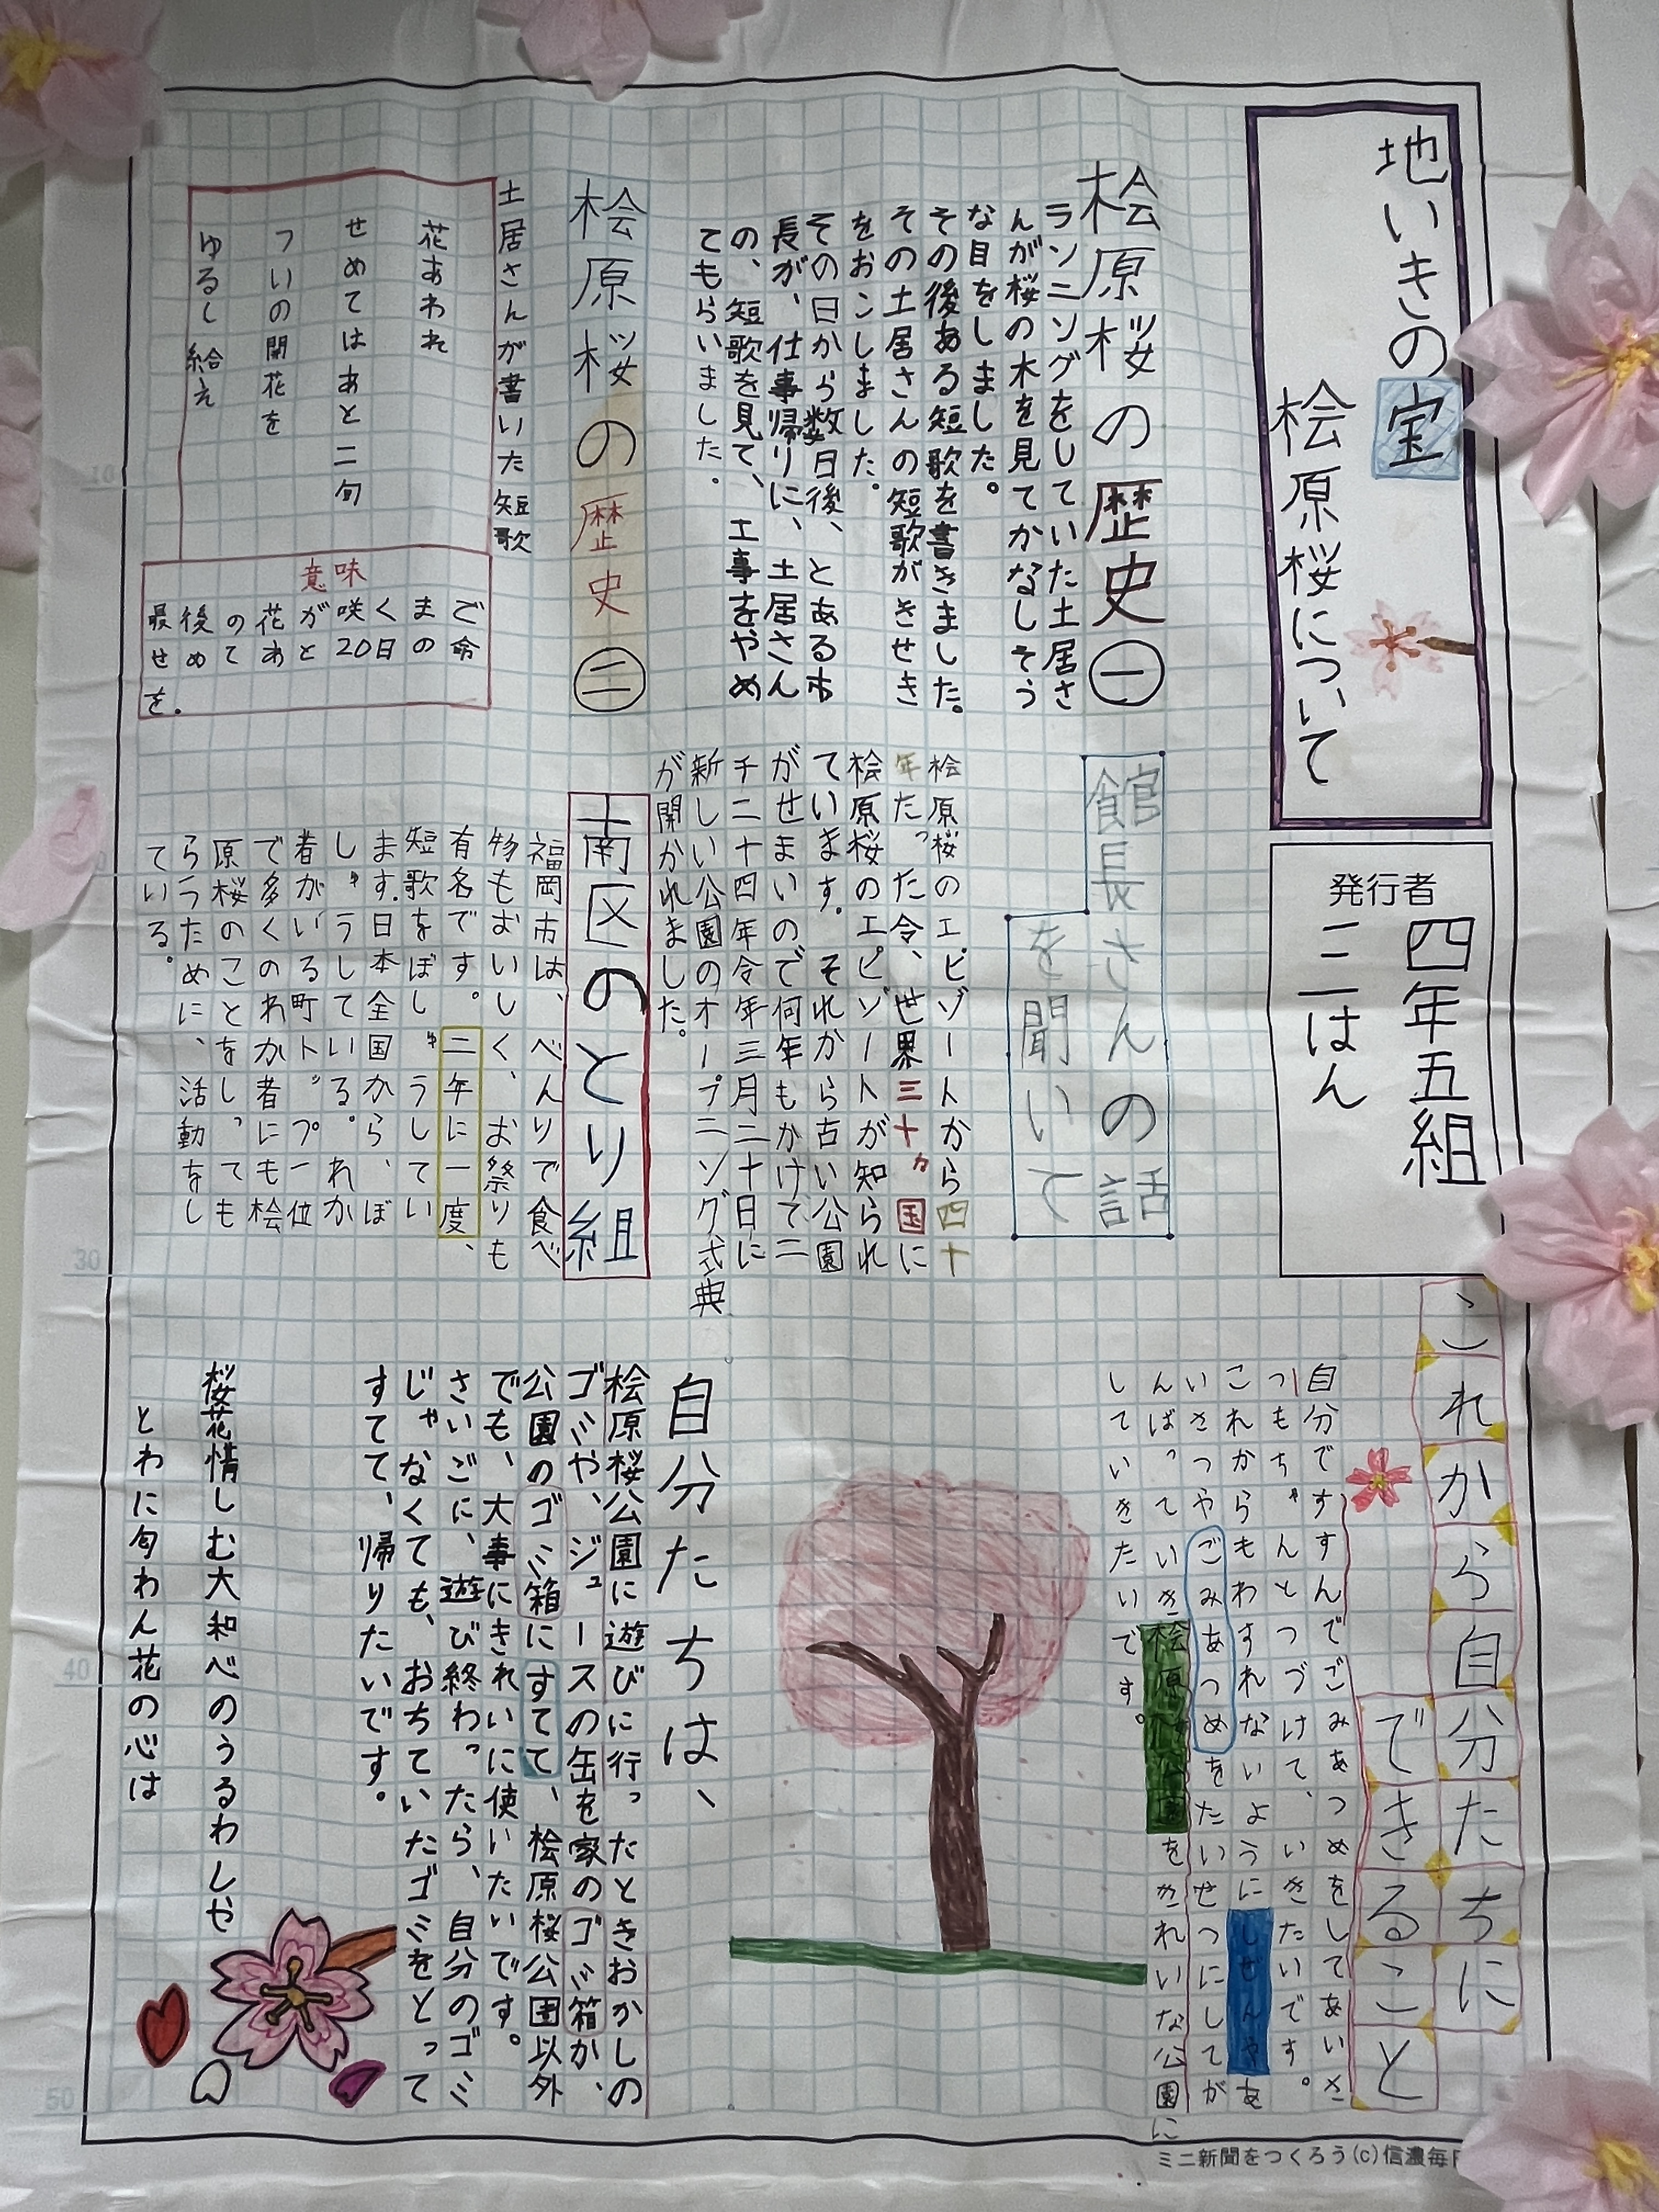 地いきの宝
桧原桜について
発行者
四年五組
三はん
桧原桜の歴史㊀
ランニングをしていた土居さ
んが桜の木を見てかなしそう
な目をしました。
その後ある短歌を書きました。
その土居さんの短歌がきせき
をおこしました。
その日から数日後、とある市
長が、仕事帰りに、土居さん
の、短歌を見て、工事をやめ
てもらいました。
桧原桜の歴史㊁
土居さんが書いた短歌
花あわれ
せめてはあと二旬
ついの開花を
ゆるし給え
意味
最後の花が咲くまで
せめてあと20日の命
を。
館長さんの話
を聞いて
桧原桜のエピソードから四十
年たった令、世界三十カ国に
桧原桜のエピソードが知られ
ています。それから古い公園
がせまいので何年もかけて二
千二十四年令年三月二十日に
新しい公園のオープニング式典
が開かれました。
南区のとり組
福岡市は、べんりで食べ
物もおいしく、お祭りも
有名です。二年に一度、
短歌をぼしゅうしてい
ます。日本全国から、ぼ
しゅうしている。れか
者がいる町トップ一位
で多くのわか者にも桧
原桜のことをしっても
らうために、活動をし
ている。
これから自分たちに
できること
自分ですすんでごみあつめをしてあいさ
つもちゃんとつづけて、いきたいです。
これからもわすれないようにしぜんやあ
いさつやごみあつめをたいせつにしてが
んばっていき桧原桜公園をきれいな公園に
していきたいです。
自分たちは、
桧原桜公園に遊びに行ったときおかしの
ゴミや、ジュースの缶を家のゴミ箱か、
公園のゴミ箱にすてて、桧原桜公園以外
でも、大事にきれいに使いたいです。
さいごに、遊び終わったら、自分のゴミ
じゃなくても、おちていたゴミをとって
すてて、帰りたいです。
桜花惜しむ大和べのうるわしや
とわに匂わん花の心は
ミニ新聞をつくろう(c)信濃毎日